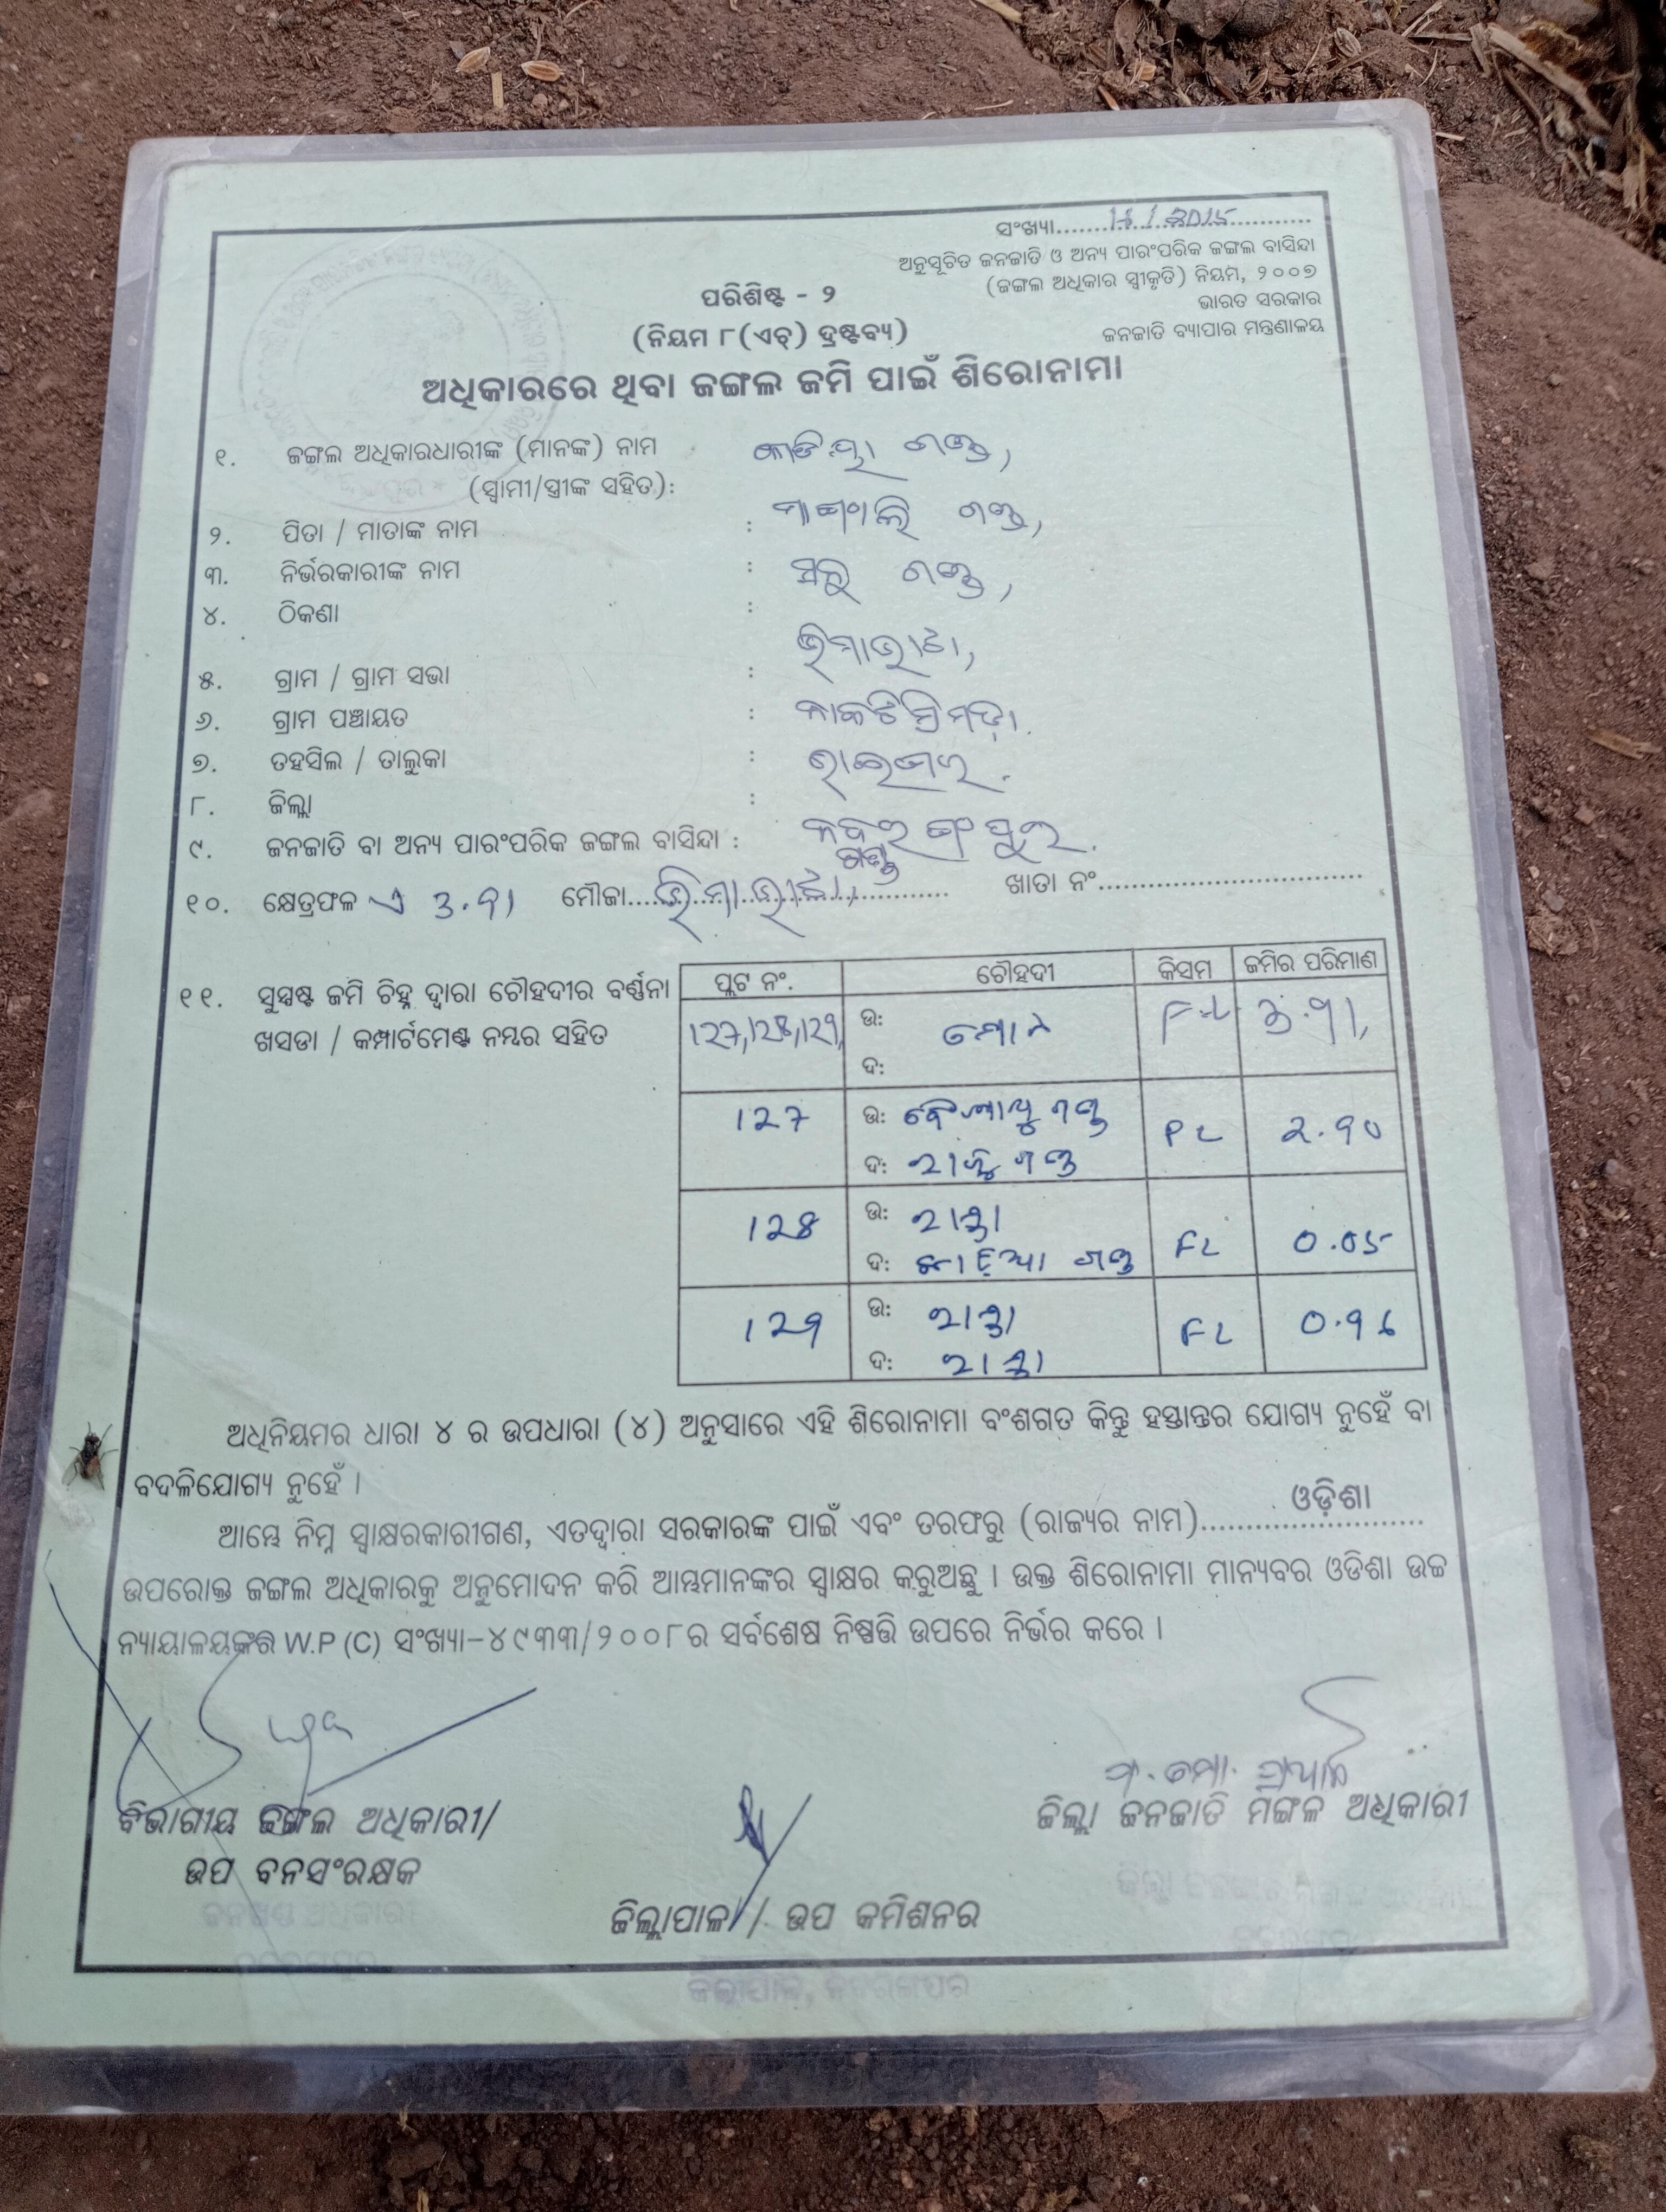 ସଂଖ୍ୟା........14/2015........
ଅନୁସୂଚିତ ଜନଜାତି ଓ ଅନ୍ୟ ପାରଂପରିକ ଜଙ୍ଗଲ ବାସିନ୍ଦା
(ଜଙ୍ଗଲ ଅଧିକାର ସ୍ୱୀକୃତି) ନିୟମ, ୨୦୦୭
ଭାରତ ସରକାର
ଜନଜାତି ବ୍ୟାପାର ମନ୍ତ୍ରଣାଳୟ
ପରିଶିଷ୍ଟ - ୨
(ନିୟମ ୮(ଏଚ୍) ଦ୍ରଷ୍ଟବ୍ୟ)
ଅଧିକାରରେ ଥିବା ଜଙ୍ଗଲ ଜମି ପାଇଁ ଶିରୋନାମା
୧. ଜଙ୍ଗଲ ଅଧିକାରଧାରୀଙ୍କ (ମାନଙ୍କ) ନାମ ଗଣ୍ଡ,
(ସ୍ୱାମୀ/ସ୍ତ୍ରୀଙ୍କ ସହିତ):
୨. ପିତା / ମାତାଙ୍କ ନାମ : ଗଣ୍ଡ,
୩. ନିର୍ଭରକାରୀଙ୍କ ନାମ : ଗଣ୍ଡ,
୪. ଠିକଣା :
୫. ଗ୍ରାମ / ଗ୍ରାମ ସଭା :
୬. ଗ୍ରାମ ପଞ୍ଚାୟତ :
୭. ତହସିଲ / ତାଲୁକା : ରାଇଘର.
୮. ଜିଲ୍ଲା : ନବରଙ୍ଗପୁର.
୯. ଜନଜାତି ବା ଅନ୍ୟ ପାରଂପରିକ ଜଙ୍ଗଲ ବାସିନ୍ଦା : ଗଣ୍ଡ
୧୦. କ୍ଷେତ୍ରଫଳ ଏ 3.91 ମୌଜା.............. ଖାତା ନଂ..............
୧୧. ସୁସ୍ପଷ୍ଟ ଜମି ଚିହ୍ନ ଦ୍ୱାରା ଚୌହଦୀର ବର୍ଣ୍ଣନା
ଖସଡା / କମ୍ପାର୍ଟମେଣ୍ଟ ନମ୍ବର ସହିତ
ପ୍ଲଟ ନଂ. ଚୌହଦୀ କିସମ ଜମିର ପରିମାଣ
127,128,129, ଉ: FL 3.91,
ଦ:
127 ଉ: ଗଣ୍ଡ FL 2.90
ଦ: ଗଣ୍ଡ
128 ଉ: ରାସ୍ତା FL 0.05
ଦ: ଗଣ୍ଡ
129 ଉ: ରାସ୍ତା FL 0.96
ଦ: ରାସ୍ତା
ଅଧିନିୟମର ଧାରା ୪ ର ଉପଧାରା (୪) ଅନୁସାରେ ଏହି ଶିରୋନାମା ବଂଶଗତ କିନ୍ତୁ ହସ୍ତାନ୍ତର ଯୋଗ୍ୟ ନୁହେଁ ବା
ବଦଳିଯୋଗ୍ୟ ନୁହେଁ ।
ଆମ୍ଭେ ନିମ୍ନ ସ୍ୱାକ୍ଷରକାରୀଗଣ, ଏତଦ୍ୱାରା ସରକାରଙ୍କ ପାଇଁ ଏବଂ ତରଫରୁ (ରାଜ୍ୟର ନାମ)........ଓଡ଼ିଶା........
ଉପରୋକ୍ତ ଜଙ୍ଗଲ ଅଧିକାରକୁ ଅନୁମୋଦନ କରି ଆମ୍ଭମାନଙ୍କର ସ୍ୱାକ୍ଷର କରୁଅଛୁ । ଉକ୍ତ ଶିରୋନାମା ମାନ୍ୟବର ଓଡିଶା ଉଚ୍ଚ
ନ୍ୟାୟାଳୟଙ୍କର W.P (C) ସଂଖ୍ୟା-୪୯୩୩/୨୦୦୮ର ସର୍ବଶେଷ ନିଷ୍ପତ୍ତି ଉପରେ ନିର୍ଭର କରେ ।
ବିଭାଗୀୟ ଜଙ୍ଗଲ ଅଧିକାରୀ/
ଉପ ବନସଂରକ୍ଷକ
ଜିଲ୍ଲାପାଳ / ଉପ କମିଶନର
ଜିଲ୍ଲା ଜନଜାତି ମଙ୍ଗଳ ଅଧିକାରୀ
ଜିଲ୍ଲାପାଳ, ନବରଙ୍ଗପୁର